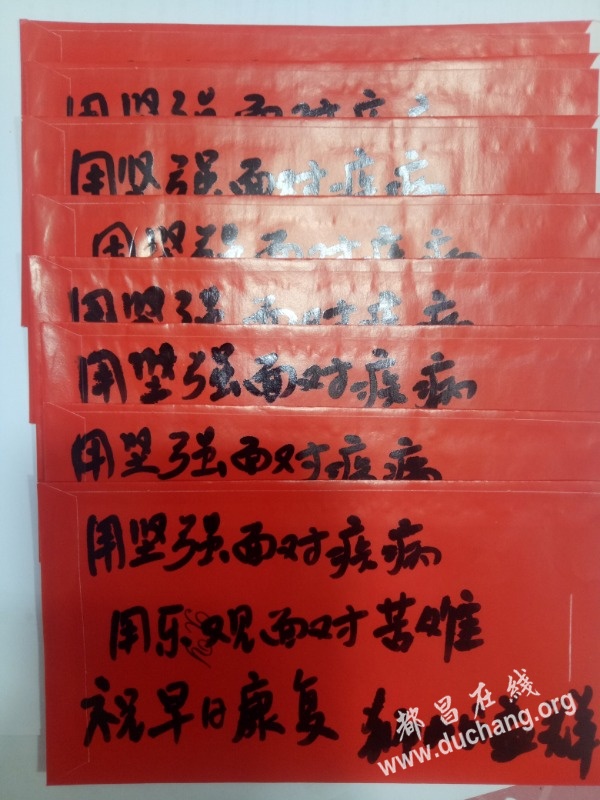 用坚强面对疾病
用坚强面对疾病
用坚强面对疾病
用坚强面对疾病
用坚强面对疾病
用坚强面对疾病
用坚强面对疾病
用乐观面对苦难
祝早日康复
都昌在线
www.duchang.org